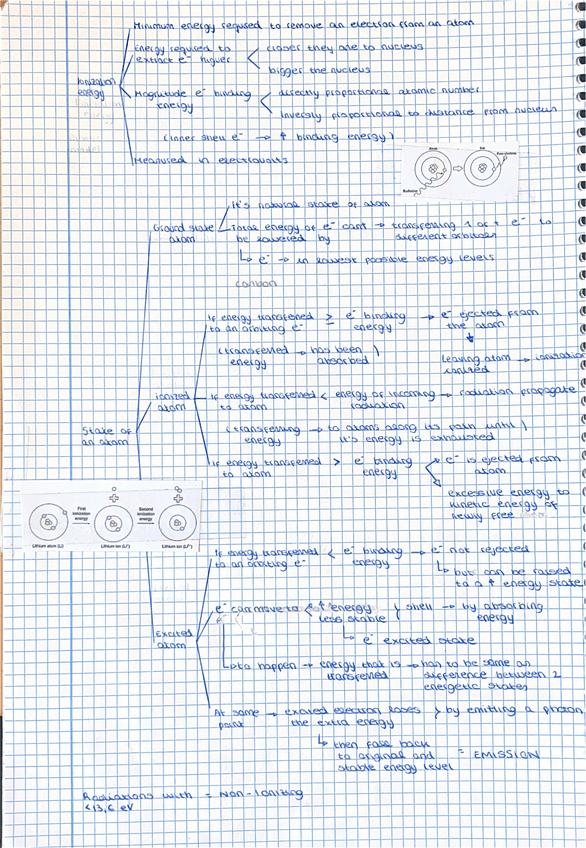 Minimum energy reqused to remove an electron from an atom
Ionization energy
Energy reqused to extract e⁻ higher
closer they are to nucleus
bigger the nucleus
Magnitude e⁻ binding energy
directly proportional atomic number
inversly proportional to distance from nucleus
(inner shell e⁻ → ↑ binding energy)
Measured in electrovolts
Atom
Ion
Free electron
Radiation
Ground state atom
It's natural state of atom
Total energy of e⁻ cant be lowered by → transferring 1 or + e⁻ to different orbitals
↳ e⁻ → in lowest possible energy levels
carbon
State of an atom
ionized atom
If energy transferred to an orbiting e⁻ ≥ e⁻ binding energy → e⁻ ejected from the atom
(transferred energy → has been absorbed)
leaving atom ionized → ionization
If energy transferred to atom < energy of incoming radiation → radiation propagate
(transferring energy → to atoms along its path until it's energy is exhausted)
If energy transferred to atom > e⁻ binding energy
e⁻ is ejected from atom
excessive energy to kinetic energy of newly free
First ionization energy
Second ionization energy
Lithium atom (Li)
Lithium ion (Li⁺)
Lithium ion (Li²⁺)
Excited atom
If energy transferred to an orbiting e⁻ < e⁻ binding energy → e⁻ not rejected
↳ but can be raised to a ↑ energy state
e⁻ can move to < ↑ energy less stable } shell → by absorbing energy
↳ e⁻ excited state
↳ to happen → energy that is transferred → has to be same as difference between 2 energetic states
At some point → excited electron loses the extra energy } by emitting a photon
↳ then falls back to original and stable energy level = EMISSION
Radiations with <13,6 eV = Non-ionizing